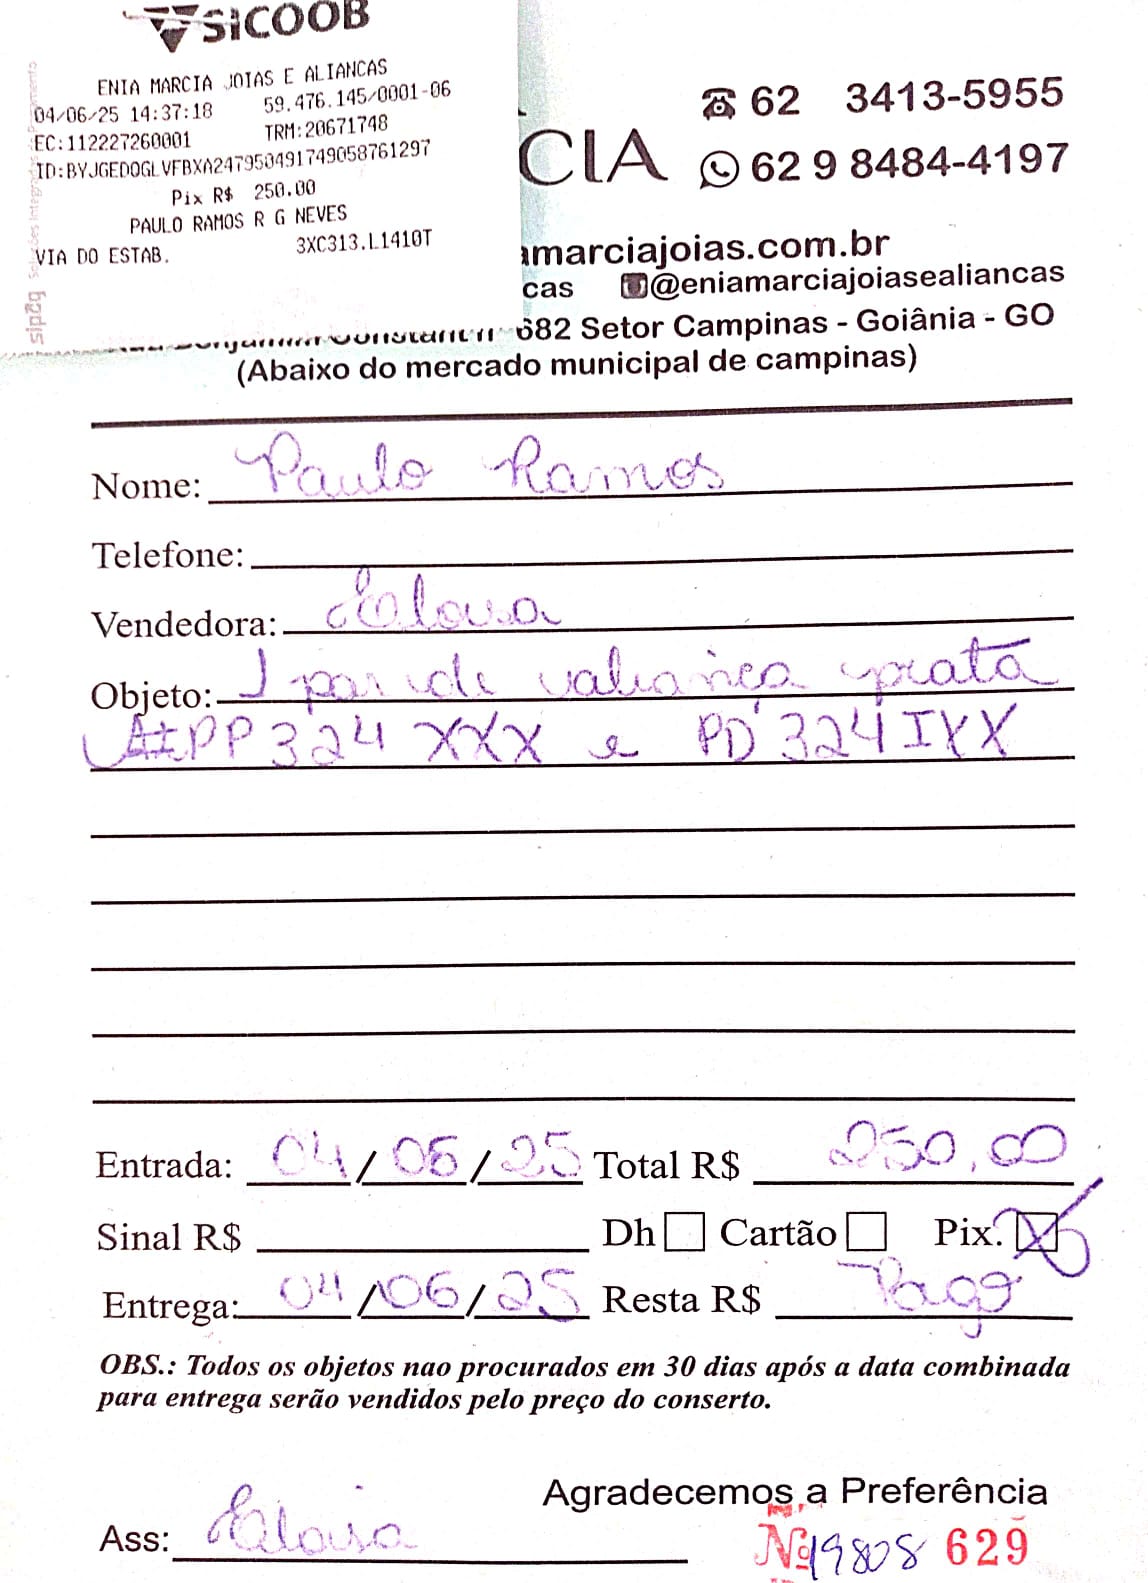 SICOOB
ENIA MARCIA JOIAS E ALIANCAS
04/06/25 14:37:18 59.476.145/0001-06
EC:112227260001 TRM:20671748
ID:BYJGEDOGLVFBXA247950491749058761297
Pix R$ 250.00
PAULO RAMOS R G NEVES
VIA DO ESTAB. 3XC313.L1410T
sipag
62 3413-5955
CIA
62 9 8484-4197
marciajoias.com.br
cas @eniamarciajoiasealiancas
682 Setor Campinas - Goiânia - GO
(Abaixo do mercado municipal de campinas)
Nome: Paulo Ramos
Telefone:
Vendedora: Elousa
Objeto: 1 par de aliança prata
PP324 XXX e PD 324IXX
Entrada: 04/06/25 Total R$ 250,00
Sinal R$ Dh Cartão Pix.
Entrega: 04/06/25 Resta R$ Pago
OBS.: Todos os objetos nao procurados em 30 dias após a data combinada
para entrega serão vendidos pelo preço do conserto.
Agradecemos a Preferência
Ass: Elousa
Nº 19808 629